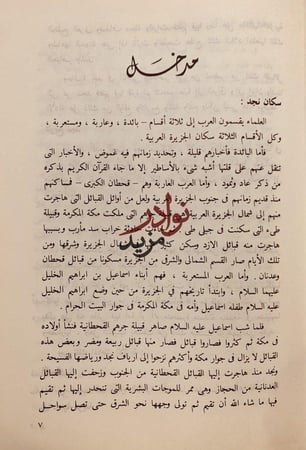 مدخل
سكان نجد :
العلماء يقسمون العرب إلى ثلاثة أقسام – بائدة ، وعاربة ، ومستعربة ،
وكل الأقسام الثلاثة سكان الجزيرة العربية .
فأما البائدة فأخبارهم قليلة ، وتحديد زمانهم فيه غموض ، والأخبار التى
تنقل عنهم على قلتها أشبه شىء بالأساطير إلا ما جاء القرآن الكريم بذكره
من ذكر عاد وثمود ، وأما العرب العاربة وهم – قحطان الكبرى – فمساكنهم
منذ قديم زمانهم فى جنوب الجزيرة العربية ولعل من أوائل القبائل التى هاجرت
منهم إلى شمال الجزيرة العربية جرهم التى ملكت مكة المكرمة وقبيلة
طىء التى سكنت فى جبلى طىء خراب سد مأرب وبسببها
هاجرت منه قبائل الازد وسكن كثير شمال الجزيرة وشرقها ومن
تلك الأيام صار القسم الشمالى والشرقى من الجزيرة مسكونا من قبائل قحطان
وعدنان . وأما العرب المستعربة ، فهم أبناء اسماعيل بن ابراهيم الخليل
عليهما السلام ، وابتدأ تاريخهم فى الجزيرة من حين وضع ابراهيم الخليل
عليه السلام طفله اسماعيل وأمه فى مكة المكرمة فى جوار البيت الحرام .
فلما شب اسماعيل عليه السلام صاهر قبيلة جرهم القحطانية فنشأ أولاده
فى مكة ثم كثروا فصاروا قبائل فصار منها قبائل ربيعة ومضر وبعض هذه
القبائل لا يزال فى جوار مكة وأكثرهم نزحوا إلى ارياف نجد ورياضها الفسيحة .
ونجد منذ هاجرت إليها القبائل القحطانية من الجنوب وزحفت إليها القبائل
العدنانية من الحجاز وهى ممر للموجات البشرية التى تنحدر إليها ثم تقيم
فيها ما شاء الله أن تقيم ثم تولى وجهها نحو الشرق حتى تصل سواحل
٧
نوادر
مزيد